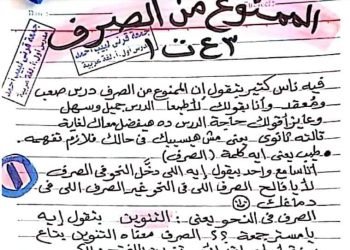 الممنوع من الصرف
٣ع ت١
فيه ناس كتير يتقول إن الممنوع من الصرف درس صعب
ومعقد وأنا بقولك لأ طبعاً الدرس جميل وسهل
وعايز أقولك حاجة الدرس ده هيفضل معاك لغاية
تالته ثانوي يعني مش هيسيبك في حالك فلازم تفهمه.
طيب يعني إيه كلمة (الصرف)
أنا سامع واحد بيقول إيه اللي دخّل النحو في الصرف
لأ يا فالح الصرف اللي في النحو غير الصرف اللي في
دماغك
الصرف في النحو يعني: التنوين بتقول إيه
يا مستر جمعة؟؟ الصرف معناه التنوين بتاع